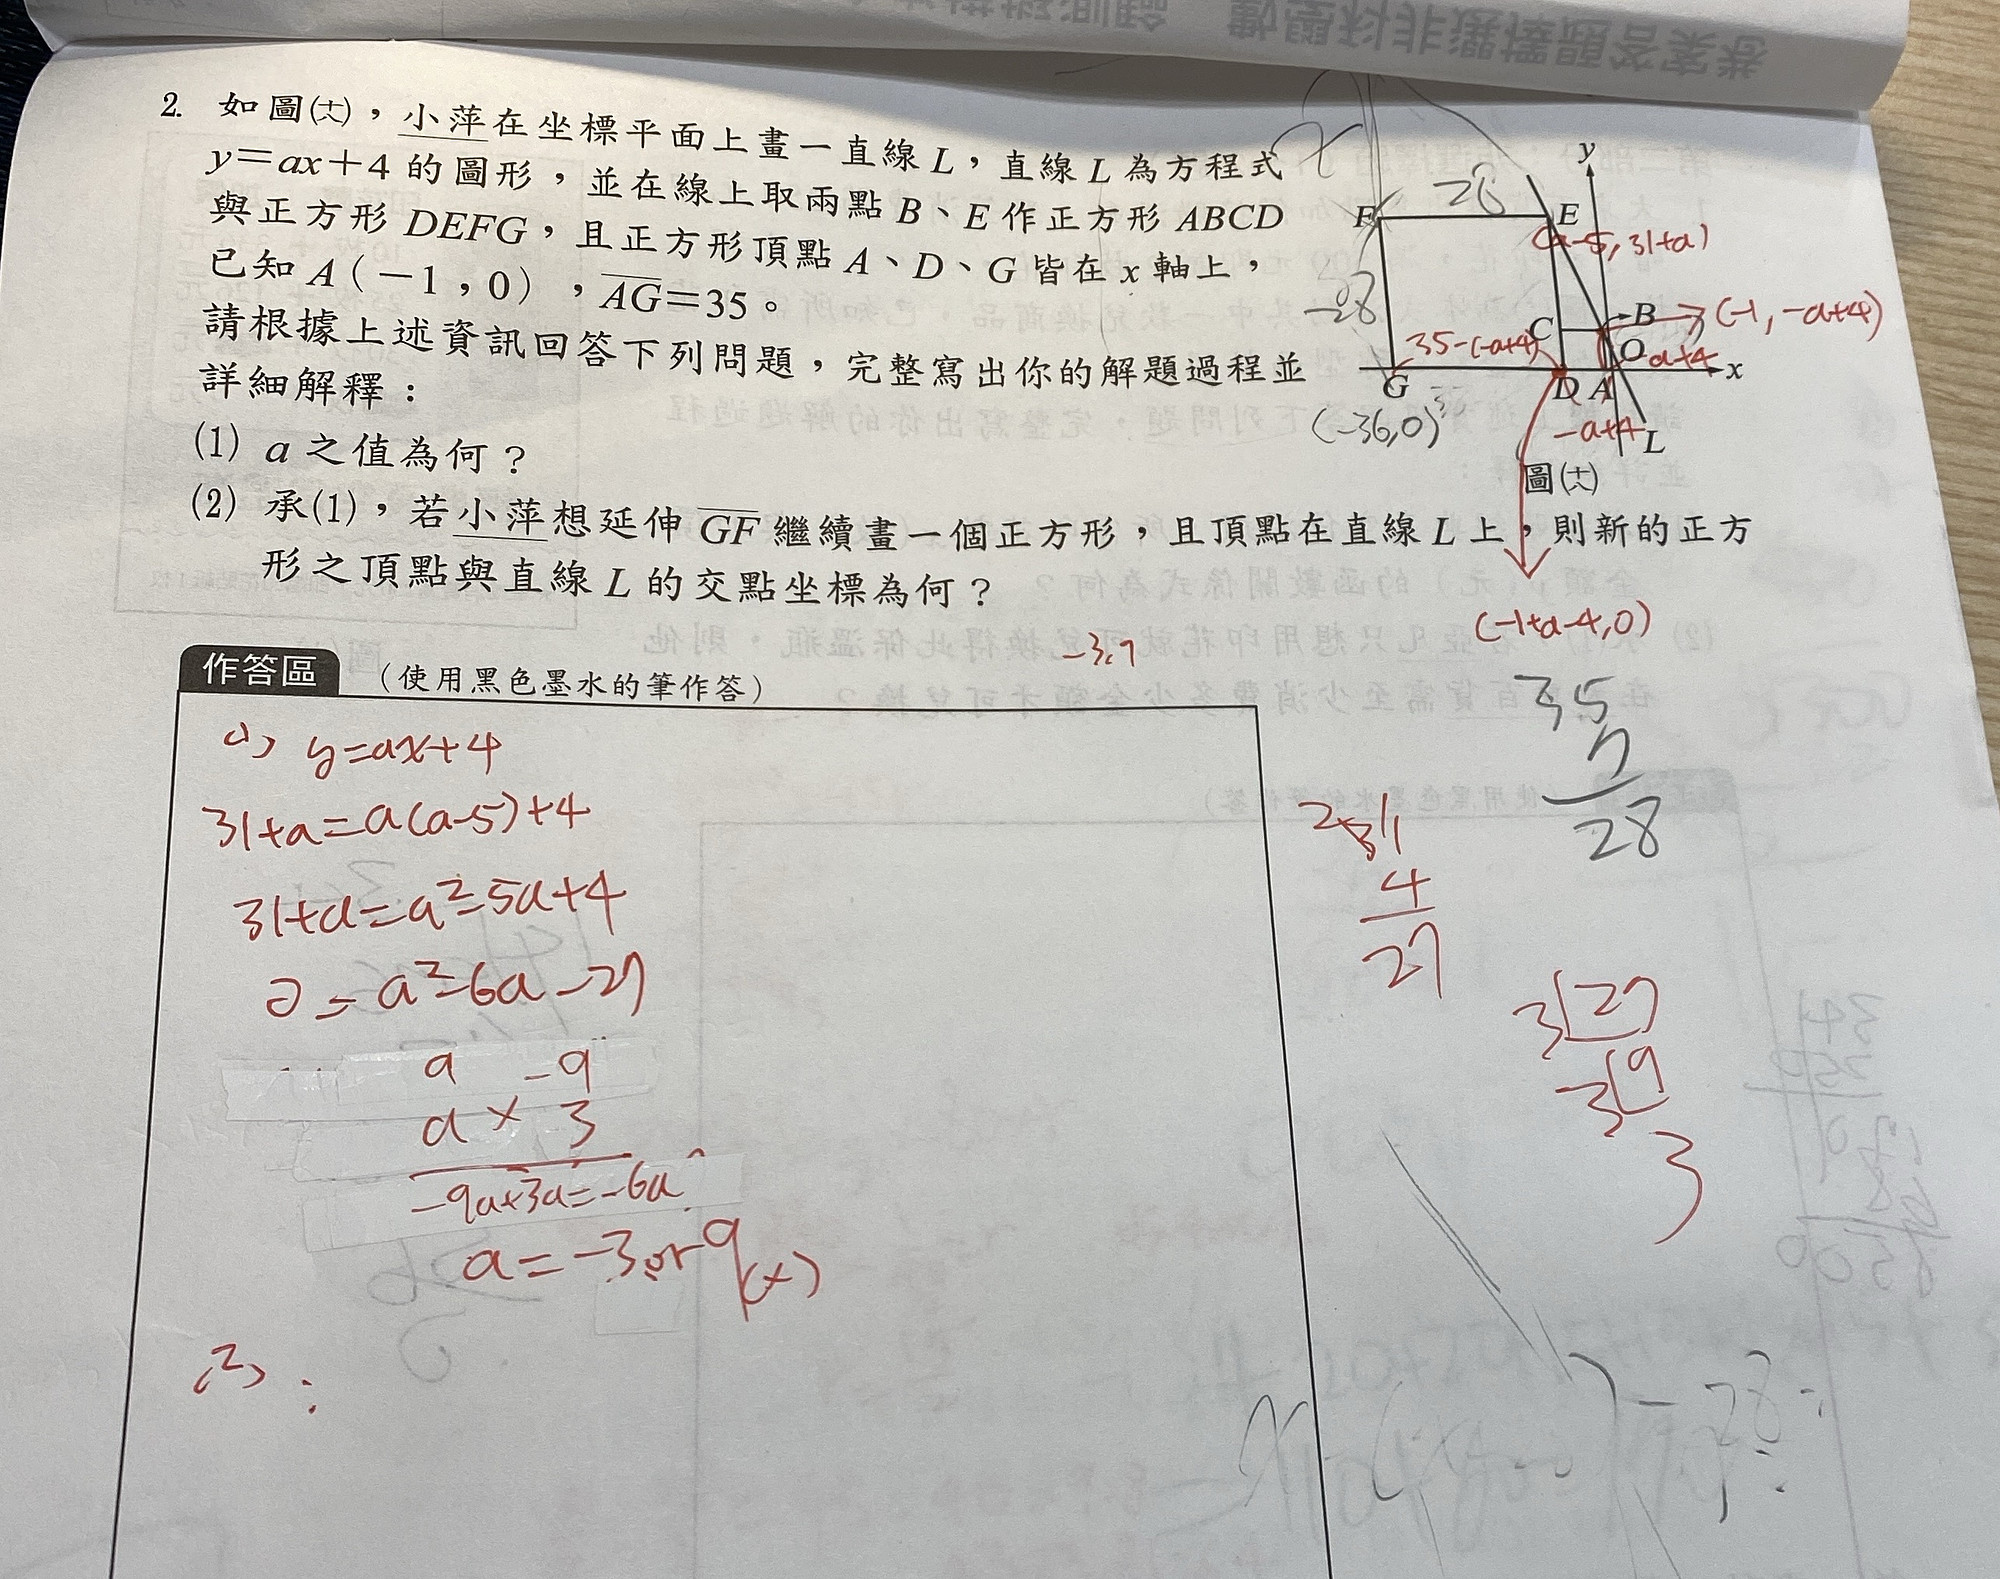 2. 如圖(六),小萍在坐標平面上畫一直線 L,直線 L 為方程式
y=ax+4 的圖形,並在線上取兩點 B、E 作正方形 ABCD
與正方形 DEFG,且正方形頂點 A、D、G 皆在 x 軸上,
已知 A(-1,0),AG=35。
請根據上述資訊回答下列問題,完整寫出你的解題過程並
詳細解釋:
(1) a 之值為何?
(2) 承(1),若小萍想延伸 GF 繼續畫一個正方形,且頂點在直線 L 上,則新的正方
形之頂點與直線 L 的交點坐標為何?
y
F
28
E
(a-5, 31+a)
28
C
B
(-1, -a+4)
35-(-a+4)
O
-a+4
x
G
D
A
(-36,0)
-a+4
L
(-1+a-4,0)
-3,9
作答區
(使用黑色墨水的筆作答)
(1) y=ax+4
31+a=a(a-5)+4
31+a=a²-5a+4
0=a²-6a-27
a -9
a × 3
-9a+3a=-6a
a=-3 or 9(×)
(2) :
35
7
28
31
4
27
3 27
3 9
3